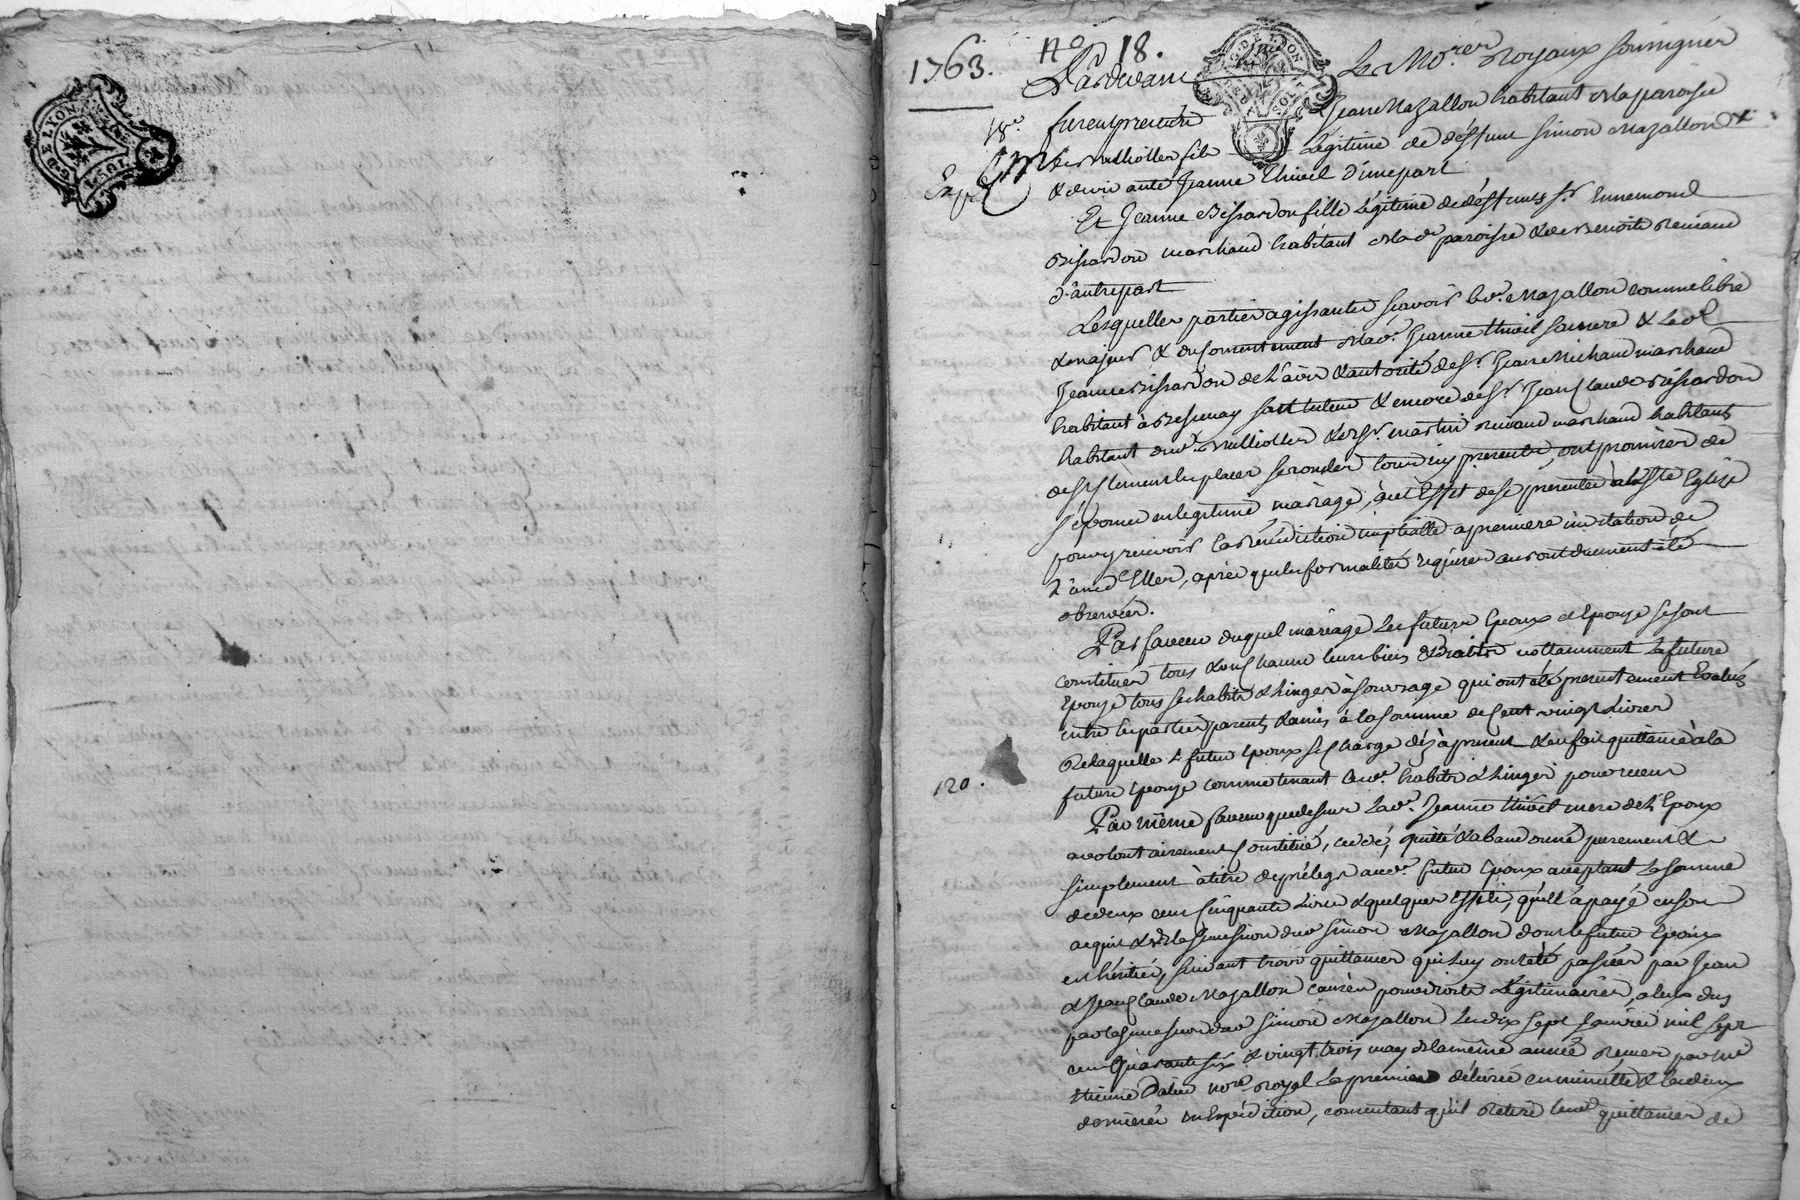 G. DE LYON
1763.
N.o 18.
G. DE LYON
SOLS
Pardevant Les No.res Royaux soussignés
furent présents Jean Mazallon habitant de la paroisse
de fils Légitime de déffunt Simon Mazallon
Exp.é
& de vivante Jeanne Thivel d'une part
Et Jeanne Bissardon fille Légitime de déffunts S.r Ennemond
Bissardon marchand habitant de la d.e paroisse & de Benoite
d'autre part
Lesquelles parties agissantes scavoir led.t Mazallon comme libre
& majeur & du consentement de lad.e Jeanne Thivel sa mere & Lad.e
Jeanne Bissardon de l'avis & autorité de S.r Jean Michaud marchand
habitant à Bessenay son tuteur & encore de S.r Jean Claude Bissardon
habitant & de S.r Martin marchand habitant
de S.t Clement les places ses oncles tous icy presents, ont promis de
s'épouser en legitime mariage, à cet Effet de se présenter à la S.te Eglise
pour y recevoir la Bénédiction nuptialle a premiere invitation de
L'un d'Elles, après que les formalités requises auront duement été
observées.
En faveur duquel mariage Les futurs Epoux & Epouse se sont
constitués tous & un chacun leurs biens & droits nottamment La future
Epouse tous ses habits & linges à son usage qui ont été presentement Evalués
entre les parties parents & amis à la somme de Cent vingt Livres
De laquelle Le futur Epoux se charge dès à present & en fait quittance à la
future Epouse comme tenant lesd.s habits & linges pour reçus
120.
En même faveur que dessus Lad.e Jeanne Thivel mere de l'Epoux
a volontairement constitué, cedé, quitté & abandonné purement &
simplement à titre de prélegs aud.t futur Epoux acceptant La somme
de deux cent Cinquante Livres & quelques Effets, qu'Ell'a payé en son
acquit & de la succession dud. Simon Mazallon dont le futur Epoux
est héritier, suivant trois quittances qui Luy ont été passées par Jean
& Jean Claude Mazallon pour droits Légitimaires, a eux dus
par la succession dud. Simon Mazallon Les dix sept Janvier mil sept
cent quarante six & vingt trois may de la même année Recues par M.e
Etienne Dalin no.re Royal La premiere délivrée en minutte & les deux
dernieres en Expédition, consentant qu'il Retire lesd. quittances de